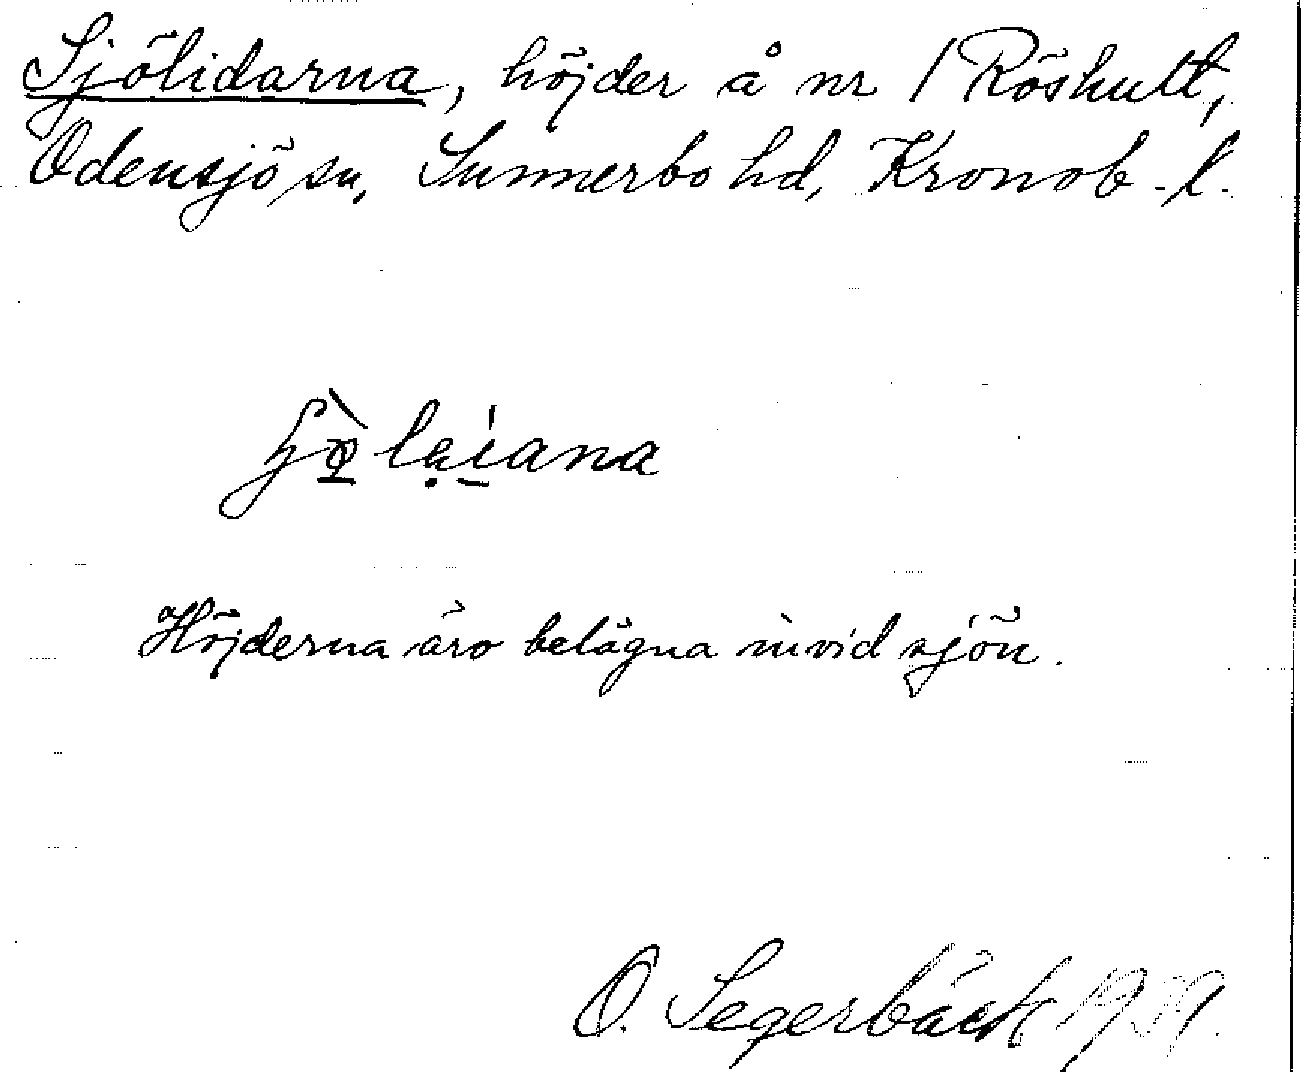 Sjölidarna, höjder å nr 1 Röshult,
Odensjö sn, Sunnerbo hd, Kronob. l.
Höjderna äro belägna invid sjön.
O. Segerbäck 1939.